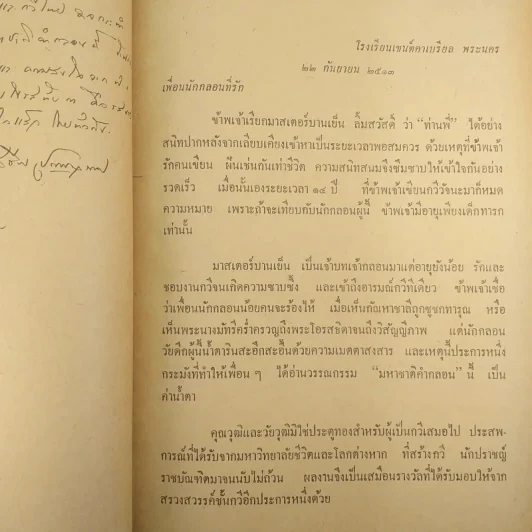 โรงเรียนเซนต์คาเบรียล พระนคร
๒๒ กันยายน ๒๕๑๓
เพื่อนนักกลอนที่รัก
ข้าพเจ้าเรียกมาสเตอร์บานเย็น ลิ้มสวัสดิ์ ว่า "ท่านพี่" ได้อย่าง
สนิทปากหลังจากเลียบเคียงเจ้าหาเป็นระยะเวลาพอสมควร ด้วยเหตุที่ข้าพเจ้า
รักคนเขียน ฝันเช่นกันเท่าชีวิต ความสนิทสนมจึงซึมซาบให้เข้าใจกันอย่าง
รวดเร็ว เมื่อนั้นเองระยะเวลา ๑๔ ปี ที่ข้าพเจ้าเขียนกวีวัจนะมาก็หมด
ความหมาย เพราะถ้าจะเทียบกับนักกลอนผู้นี้ ข้าพเจ้ามีอายุเพียงเด็กทารก
เท่านั้น
มาสเตอร์บานเย็น เป็นเจ้าบทเจ้ากลอนมาแต่อายุยังน้อย รักและ
ชอบงานกวีจนเกิดความซาบซึ้ง และเข้าถึงอารมณ์กวีทีเดียว ข้าพเจ้าเชื่อ
ว่าเพื่อนนักกลอนน้อยคนจะร้องไห้ เมื่อเห็นกัณหาชาลีถูกชูชกทารุณ หรือ
เห็นพระนางมัทรีคร่ำครวญถึงพระโอรสธิดาจนถึงวิสัญญีภาพ แต่นักกลอน
วัยดึกผู้นี้น้ำตารินสะอึกสะอื้นด้วยความเมตตาสงสาร และเหตุนี้ประการหนึ่ง
กระมังที่ทำให้เพื่อน ๆ ได้อ่านวรรณกรรม "มหาชาติคำกลอน" นี้ เป็น
ค่าน้ำตา
คุณวุฒิและวัยวุฒิมิใช่ประตูทองสำหรับผู้เป็นกวีเสมอไป ประสพ-
การณ์ที่ได้รับจากมหาวิทยาลัยชีวิตและโลกต่างหาก ที่สร้างกวี นักปราชญ์
ราชบัณฑิตมาจนนับไม่ถ้วน ผลงานจึงเป็นเสมือนรางวัลที่ได้รับมอบให้จาก
สรวงสวรรค์ชั้นกวีอีกประการหนึ่งด้วย